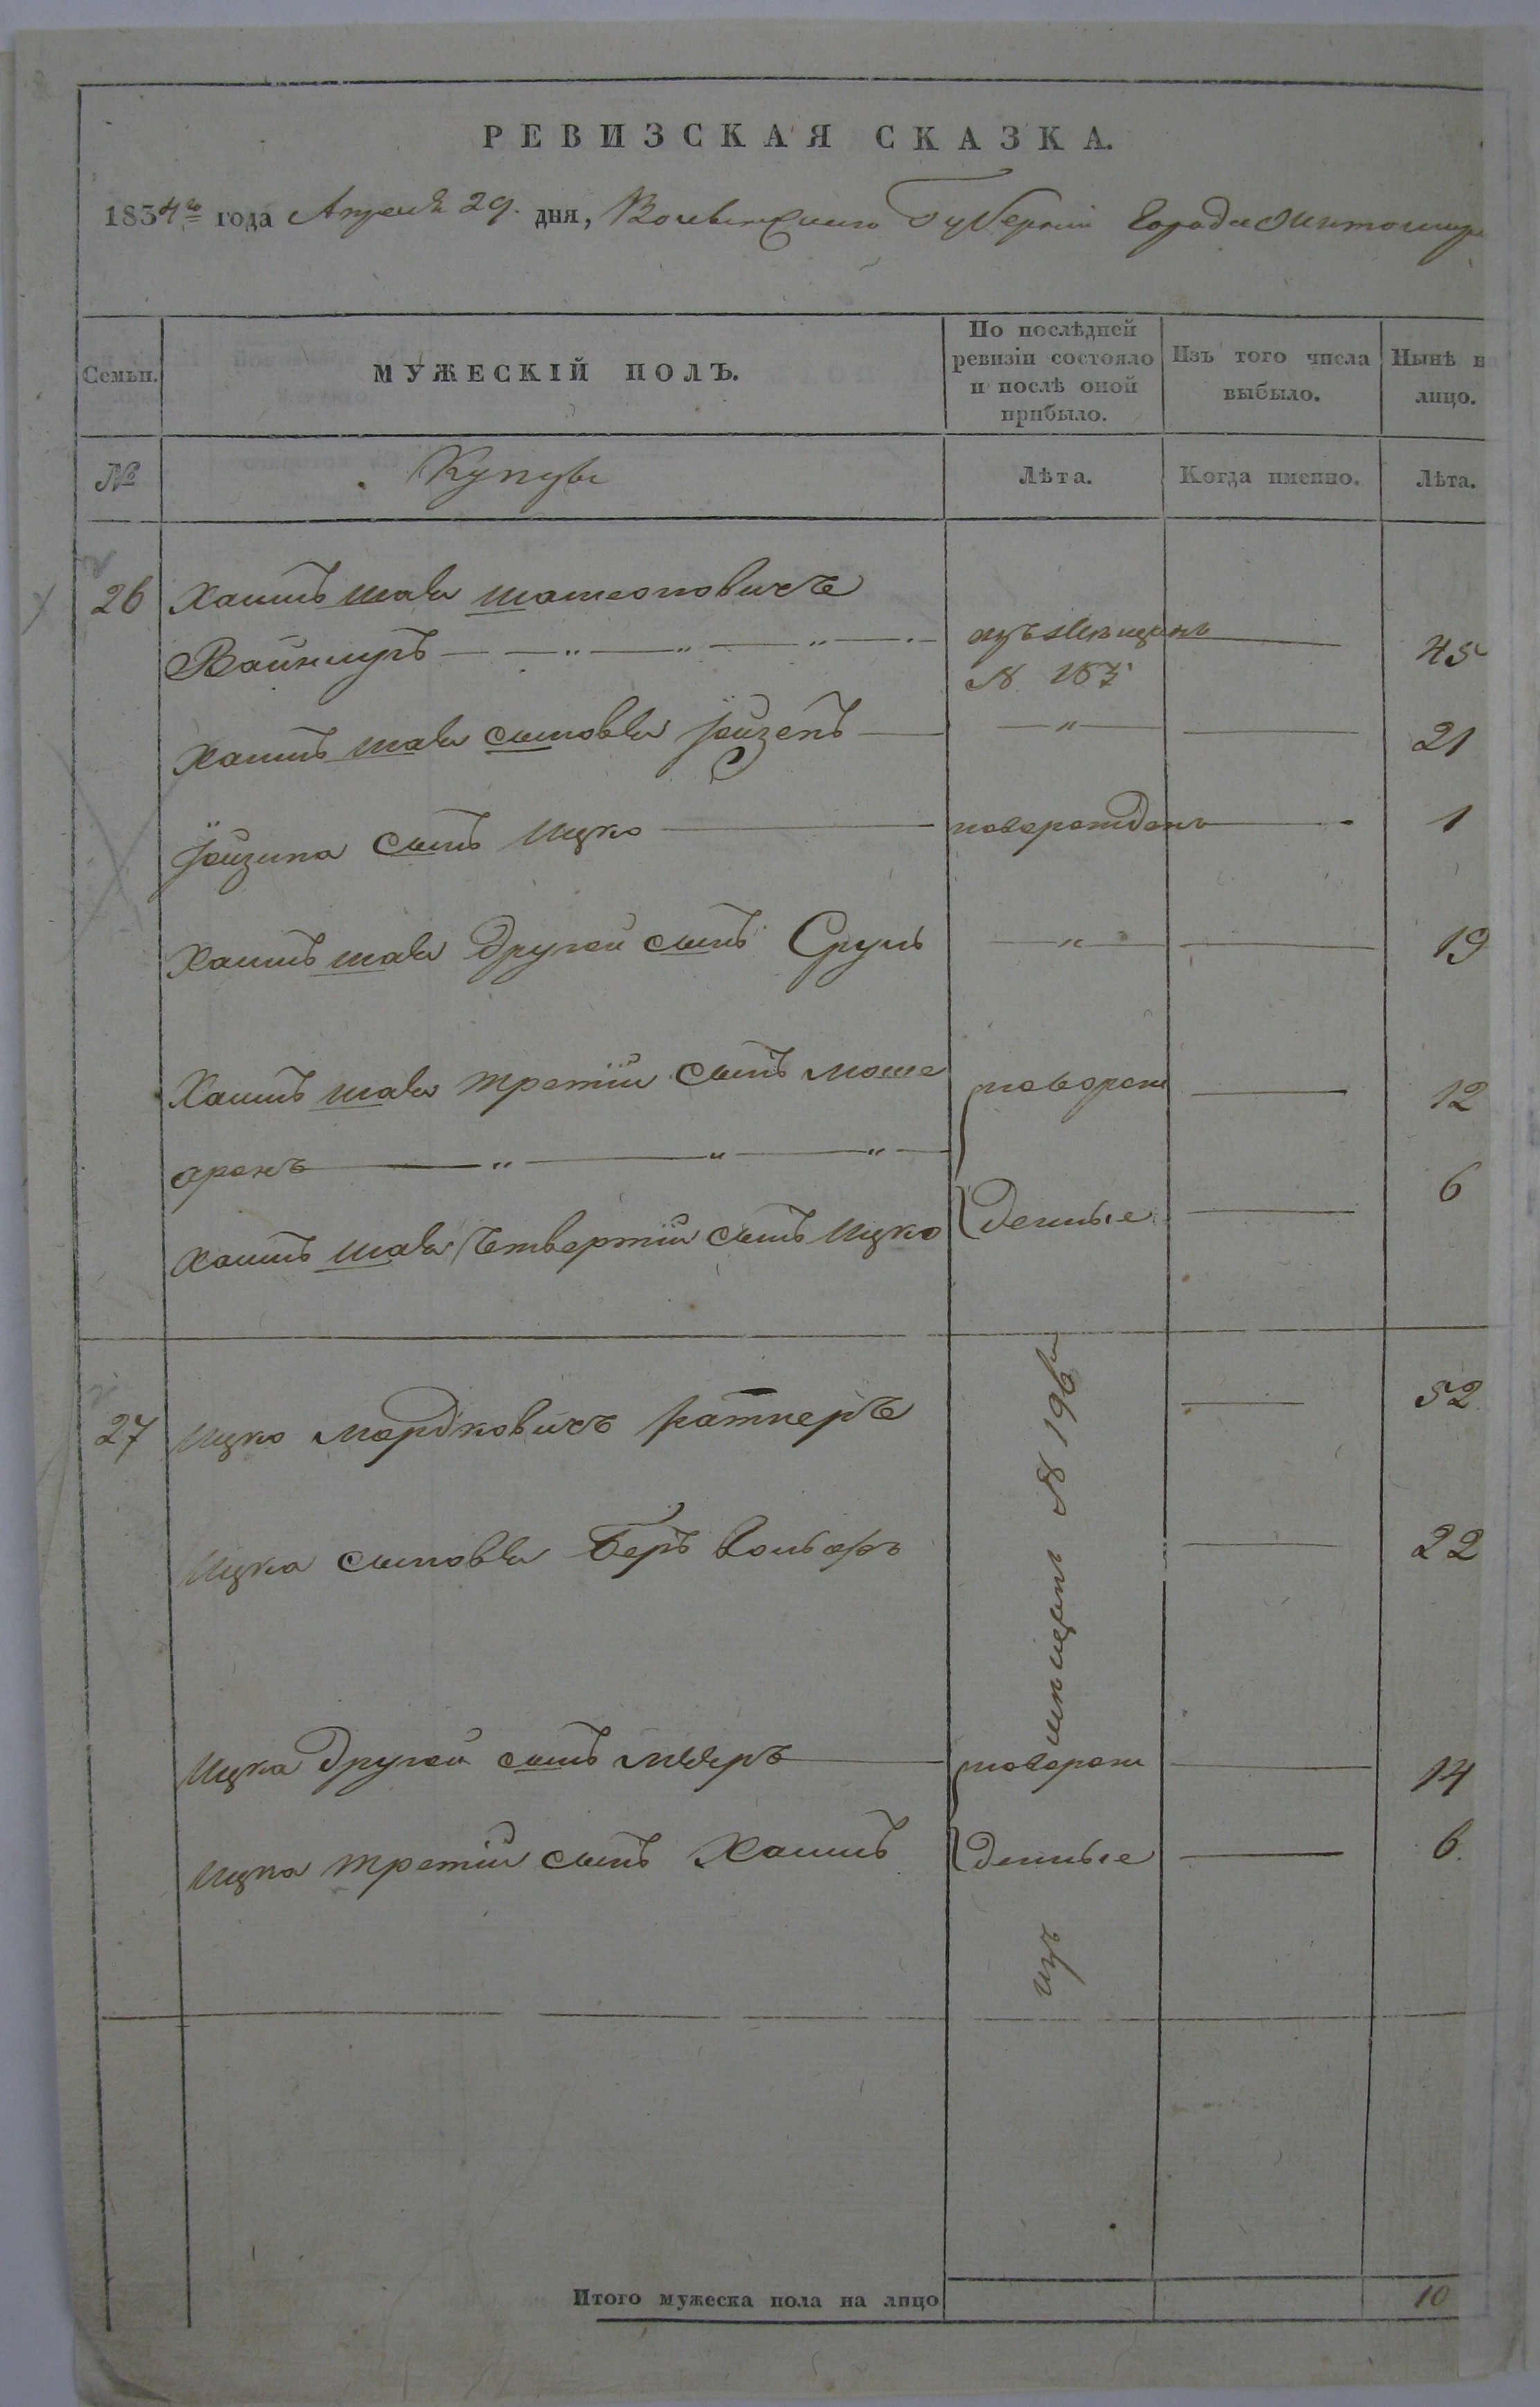 РЕВИЗСКАЯ СКАЗКА.
1834го года Апреля 29. дня, Волынской Губернии Города Житомир
Семьи.
МУЖЕСКІЙ ПОЛЪ.
По послѣдней ревизіи состояло и послѣ оной прибыло.
Изъ того числа выбыло.
Нынѣ н лицо.
№
Купцы
Лѣта.
Когда именно.
Лѣта.
26 Хаимъ шаи
Вайншу — изъ мещанъ 45
N 187
Хаимъ шаи сыновья Іойзепъ — " — 21
Іойзипа сынъ Ицко — новорожденъ — 1
Хаимъ шаи другой сынъ Сруль — " — 19
Хаимъ шаи третій сынъ моше новорож — 12
аронъ — " — " — "
Хаимъ шаи четвертій сынъ Ицко денные — 6
27 Ицко Мордковичъ ратнеръ — 52
Ицка сыновья Беръ вольфъ — 22
изъ мещанъ N 196
Ицка другой сынъ мееръ — новорож — 14
Ицка третій сынъ Хаимъ денные — 6.
Итого мужеска пола на лицо 10